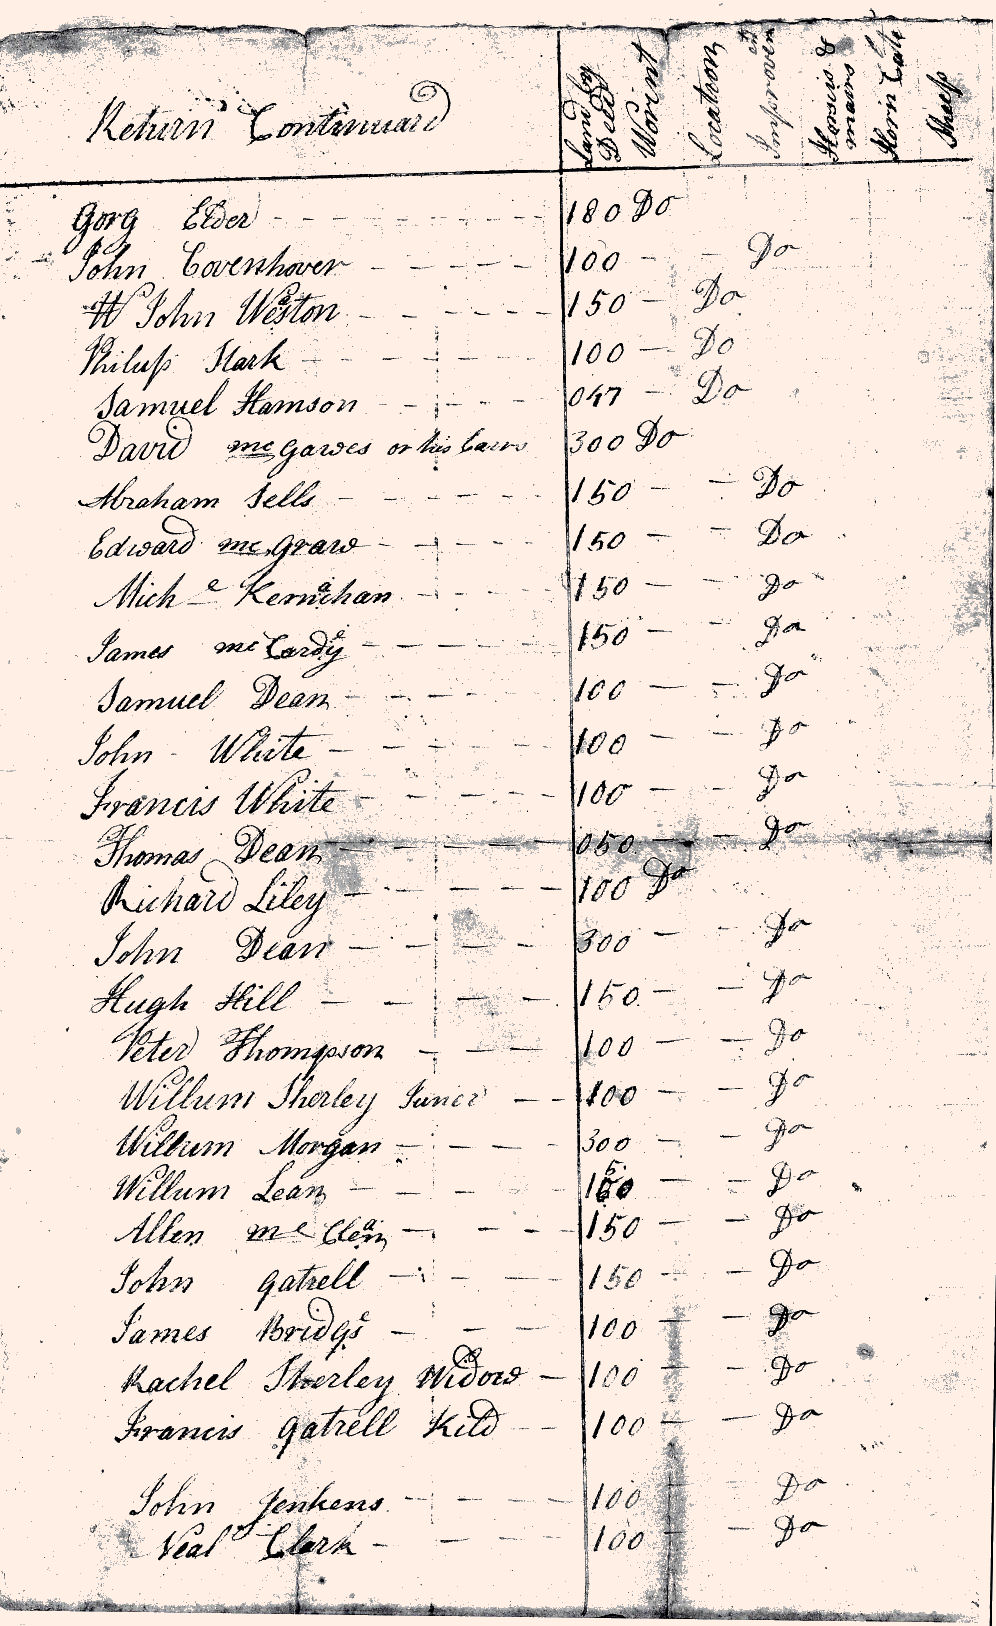 Return Continuard
Land by Deed
Worint
Location
Improvemets
Horsis & mairs
Horin Catle
Sheep
Gorg Elder 180 Do
John Covenhover 100 Do
W John Weston 150 Do
Philup Stark 100 Do
Samuel Hamson 047 Do
David mc Gawes or his 300 Do
Abraham Sells 150 Do
Edward mc Graw 150 Do
Mich e Kernichan 150 Do
James mc Cardy 150 Do
Samuel Dean 100 Do
John White 100 Do
Francis White 100 Do
Thomas Dean 050 Do
Richard Liley 100 Do
John Dean 300 Do
Hugh Hill 150 Do
Peter Thompson 100 Do
Willum Sherley Juner 100 Do
Willum Morgan 300 Do
Willum Lean 150 Do
Allen mc Clean 150 Do
John gatrell 150 Do
James Bridgs 100 Do
Rachel Sherley Widow 100 Do
Francis gatrell Kild 100 Do
John Jenkens 100 Do
Neal Clark 100 Do